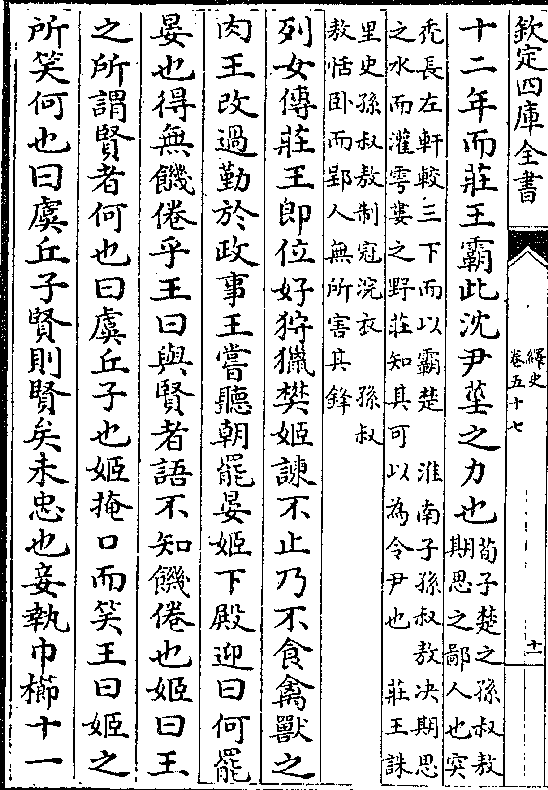 欽定四庫全書
繹史
卷五十七
十一
十二年而莊王霸此沈尹莖之力也
荀子楚之孫叔敖
期思之鄙人也突
禿長左軒較三下而以霸楚 淮南子孫叔敖决期思
之水而灌雩婁之野莊知其可以為令尹也 莊王誅
里史孫叔敖制冠浣衣 孫叔
敖恬卧而郢人無所害其鋒
列女傳莊王即位好狩獵樊姬諫不止乃不食禽獸之
肉王改過勤於政事王嘗聽朝罷晏姬下殿迎曰何罷
晏也得無饑倦乎王曰與賢者語不知饑倦也姬曰王
之所謂賢者何也曰虞丘子也姬掩口而笑王曰姬之
所笑何也曰虞丘子賢則賢矣未忠也妾執巾櫛十一